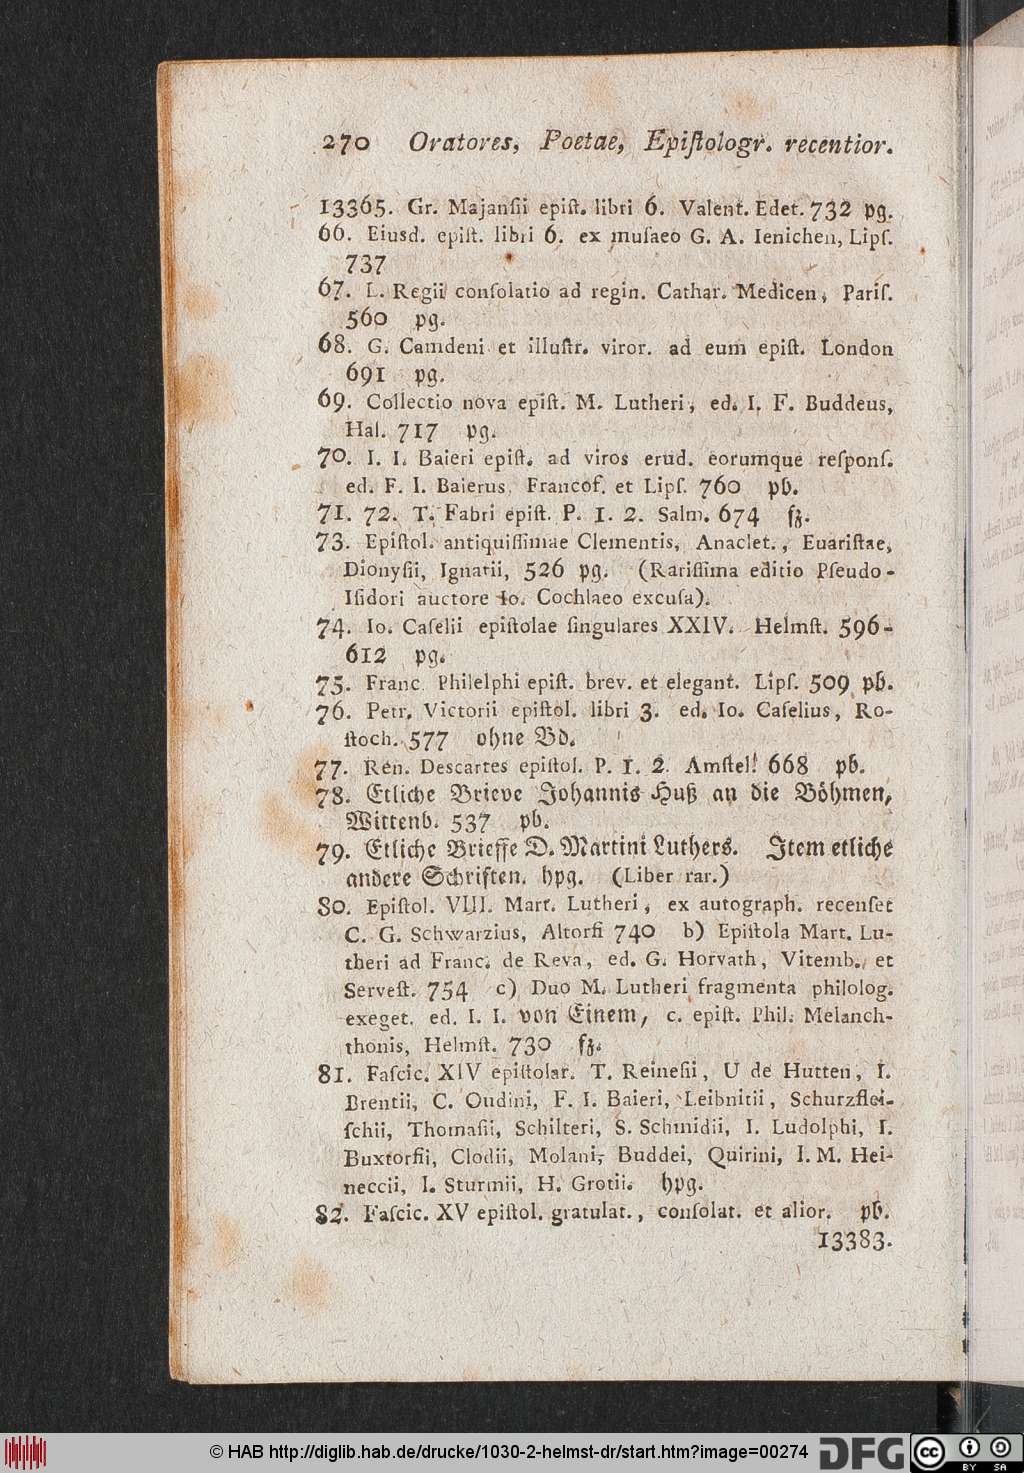 270 Oratores, Poetae, Epiſtologr. recentior.
13365. Gr. Majanſii epiſt. libri 6. Valent. Edet. 732 pg.
66. Eiusd. epiſt. libri 6. ex muſaeo G. A. Ienichen, Lipſ.
737
67. L. Regii conſolatio ad regin. Cathar. Medicen, Pariſ.
560 pg.
68. G. Camdeni et illuſtr. viror. ad eum epiſt. London
691 pg.
69. Collectio nova epiſt. M. Lutheri, ed. I. F. Buddeus,
Hal. 717 pg.
70. I. I. Baieri epiſt. ad viros erud. eorumque reſponſ.
ed. F. I. Baierus, Francof. et Lipſ. 760 pb.
71. 72. T. Fabri epiſt. P. 1. 2. Salm. 674 ſz.
73. Epiſtol. antiquiſſimae Clementis, Anaclet., Euariſtae,
Dionyſii, Ignatii, 526 pg. (Rariſſima editio Pſeudo-
Iſidori auctore Io. Cochlaeo excuſa).
74. Io. Caſelii epiſtolae ſingulares XXIV. Helmſt. 596-
612 pg.
75. Franc. Philelphi epiſt. brev. et elegant. Lipſ. 509 pb.
76. Petr. Victorii epiſtol. libri 3. ed. Io. Caſelius, Ro-
ſtoch. 577 ohne Bd.
77. Ren. Descartes epiſtol. P. 1. 2. Amſtel. 668 pb.
78. Etliche Brieve Johannis Huß an die Böhmen,
Wittenb. 537 pb.
79. Etliche Brieffe D. Martini Luthers. Item etliche
andere Schriften. hpg. (Liber rar.)
80. Epiſtol. VIII. Mart. Lutheri, ex autograph. recenſet
C. G. Schwarzius, Altorfi 740 b) Epiſtola Mart. Lu-
theri ad Franc. de Reva, ed. G. Horvath, Vitemb. et
Serveſt. 754 c) Duo M. Lutheri fragmenta philolog.
exeget. ed. I. I. von Einem, c. epiſt. Phil. Melanch-
thonis, Helmſt. 730 ſz.
81. Faſcic. XIV epiſtolar. T. Reineſii, U de Hutten, I.
Brentii, C. Oudini, F. I. Baieri, Leibnitii, Schurzflei-
ſchii, Thomaſii, Schilteri, S. Schmidii, I. Ludolphi, I.
Buxtorfii, Clodii, Molani, Buddei, Quirini, I. M. Hei-
neccii, I. Sturmii, H. Grotii. hpg.
82. Faſcic. XV epiſtol. gratulat., conſolat. et alior. pb.
13383.
© HAB http://diglib.hab.de/drucke/1030-2-helmst-dr/start.htm?image=00274
DFG
cc BY SA